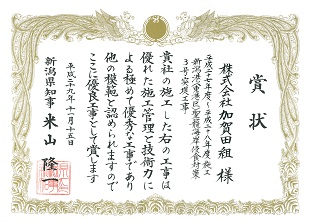 賞状
株式会社 加賀田組 様
平成二十七年度～平成二十八年度施工
新潟港(東港区)聖籠海岸侵食対策
3号突堤工事
貴社の施工した右の工事は
優れた施工管理と技術力に
よる極めて優秀な工事であり
他の模範と認められますので
ここに優良工事として賞します
平成二十九年十一月十五日
新潟県知事 米山隆一